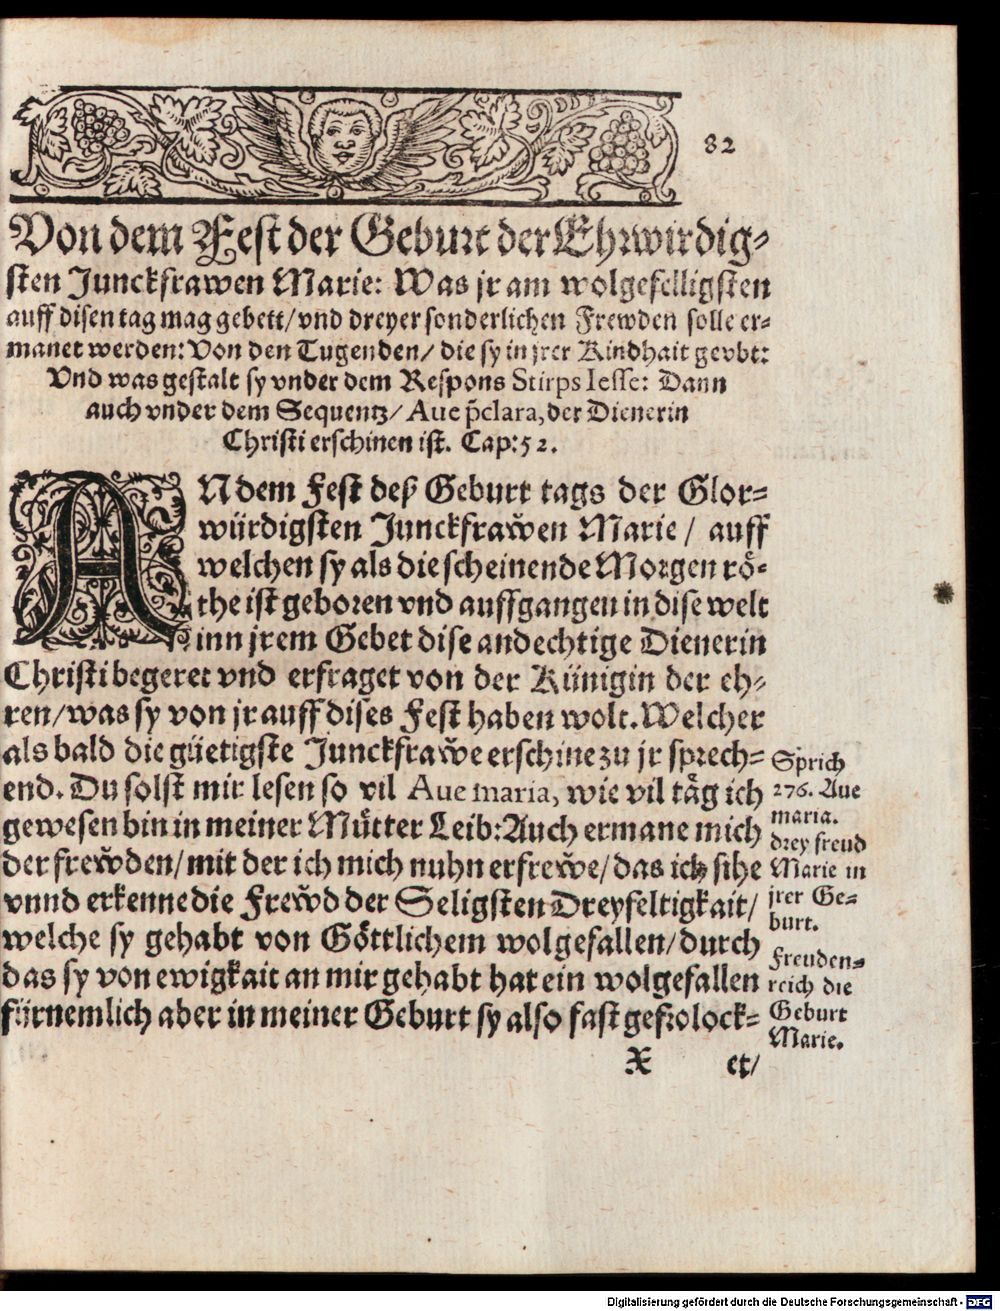 82
Von dem Fest der Geburt der Ehrwirdig-
sten Junckfrawen Marie: Was jr am wolgefelligsten
auff disen tag mag gebett/ vnd dreyer sonderlichen Frewden solle er-
manet werden: Von den Tugenden/ die sy in jrer Kindhait gevbt:
Vnd was gestalt sy vnder dem Respons Stirps Iesse: Dann
auch vnder dem Sequentz/ Aue p̃clara, der Dienerin
Christi erschinen ist. Cap: 52.
AN dem Fest deß Geburt tags der Glor-
würdigsten Junckfraw̆en Marie/ auff
welchen sy als die scheinende Morgen rö-
the ist geboren vnd auffgangen in dise welt
inn jrem Gebet dise andechtige Dienerin
Christi begeret vnd erfraget von der Künigin der eh-
ren/ was sy von jr auff dises Fest haben wolt. Welcher
als bald die güetigste Junckfraw̆e erschine zu jr sprech-
end. Du solst mir lesen so vil Aue maria, wie vil täg ich
gewesen bin in meiner Můtter Leib: Auch ermane mich
der frew̆den/ mit der ich mich nuhn erfrew̆e/ das ich sihe
vnnd erkenne die Frew̆d der Seligsten Dreyfeltigkait/
welche sy gehabt von Göttlichem wolgefallen/ durch
das sy von ewigkait an mir gehabt hat ein wolgefallen
fürnemlich aber in meiner Geburt sy also fast gefrolock-
X et/
Sprich
276. Aue
maria.
drey freud
Marie in
jrer Ge-
burt.
Freuden-
reich die
Geburt
Marie.
Digitalisierung gefördert durch die Deutsche Forschungsgemeinschaft - DFG